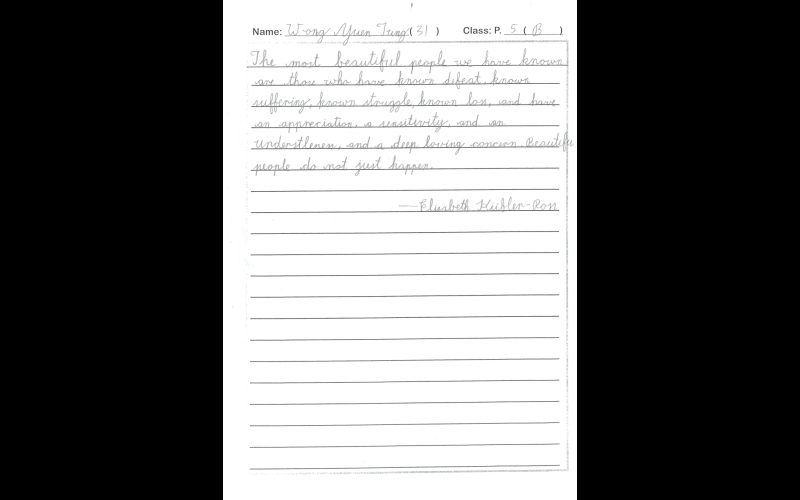 Name: Wong Yuen Tung (31) Class: P. 5 ( B )
The most beautiful people we have known
are those who have known defeat, known
suffering, known struggle, known loss, and have
an appreciation, a sensitivity, and an
and a deep loving concern. Beautiful
people do not just happen.
—Elisabeth Kübler-Ross